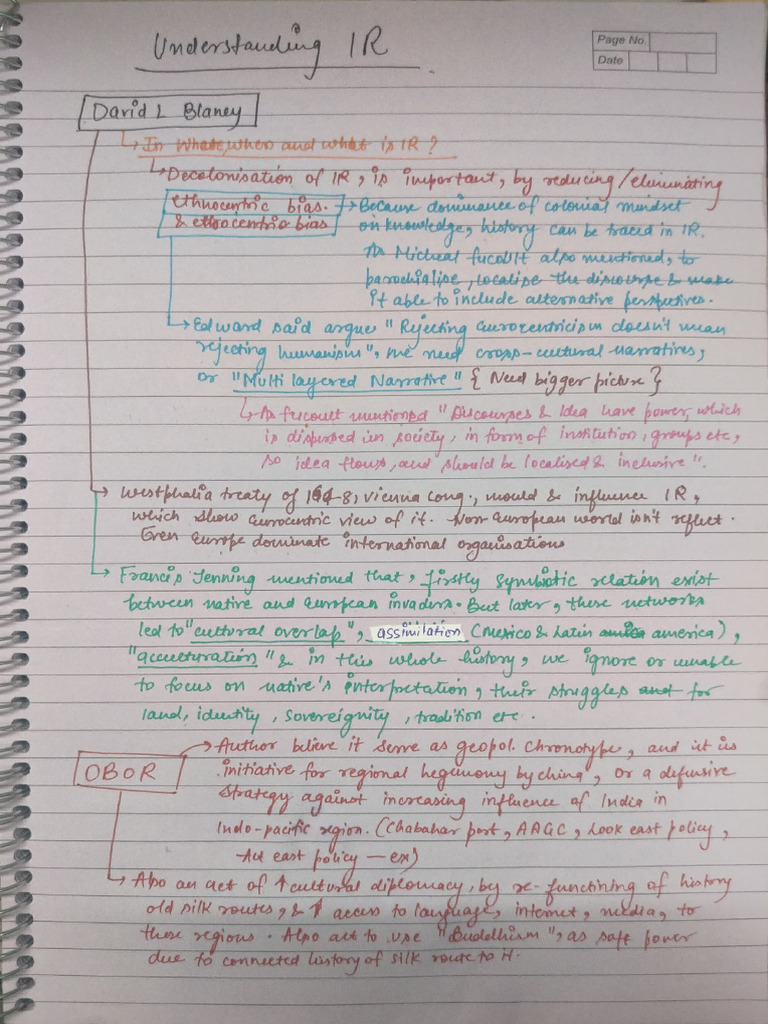 Understanding IR
Page No.
Date
David L Blaney
In Where, when and what is IR?
Decolonisation of IR, is important, by reducing/eliminating
ethnocentric bias.
& ethnocentric bias
Because dominance of colonial mindset
on knowledge, history can be traced in IR.
As Micheal fucoult also mentioned, to
parochialise, localise the discourse & make
it able to include alternative perspectives.
Edward said argue "Rejecting eurocentricism doesn't mean
rejecting humanism", we need cross-cultural narratives,
or "Multi layered Narrative" { Need bigger picture }
As fucoult mentioned "Discourses & Idea have power, which
is dispersed in society, in form of institution, groups etc,
so idea flows, and should be localised & inclusive".
Westphalia treaty of 1648, vienna cong., mould & influence IR,
which show eurocentric view of it. Non-European world isn't reflect.
Even europe dominate international organisations
Francis Jenning mentioned that, firstly symbiotic relation exist
between native and european invaders. But later, these networks
led to "cultural overlap", assimilation (Mexico & Latin america),
"acculturation" & in this whole history, we ignore or unable
to focus on native's interpretation, their struggles for
land, identity, sovereignity, tradition etc.
OBOR
Author believe it serve as geopol. Chronotype, and it is
initiative for regional hegemony by china, or a defensive
strategy against increasing influence of India in
Indo-pacific region. (Chabahar port, AAGC, Look east policy,
Act east policy — ex)
Also an act of ↑ cultural diplomacy, by re-functining of history
old silk routes, & ↑ access to language, internet, media, to
these regions. Also act to use "Buddhism", as soft power
due to connected history of silk route to it.